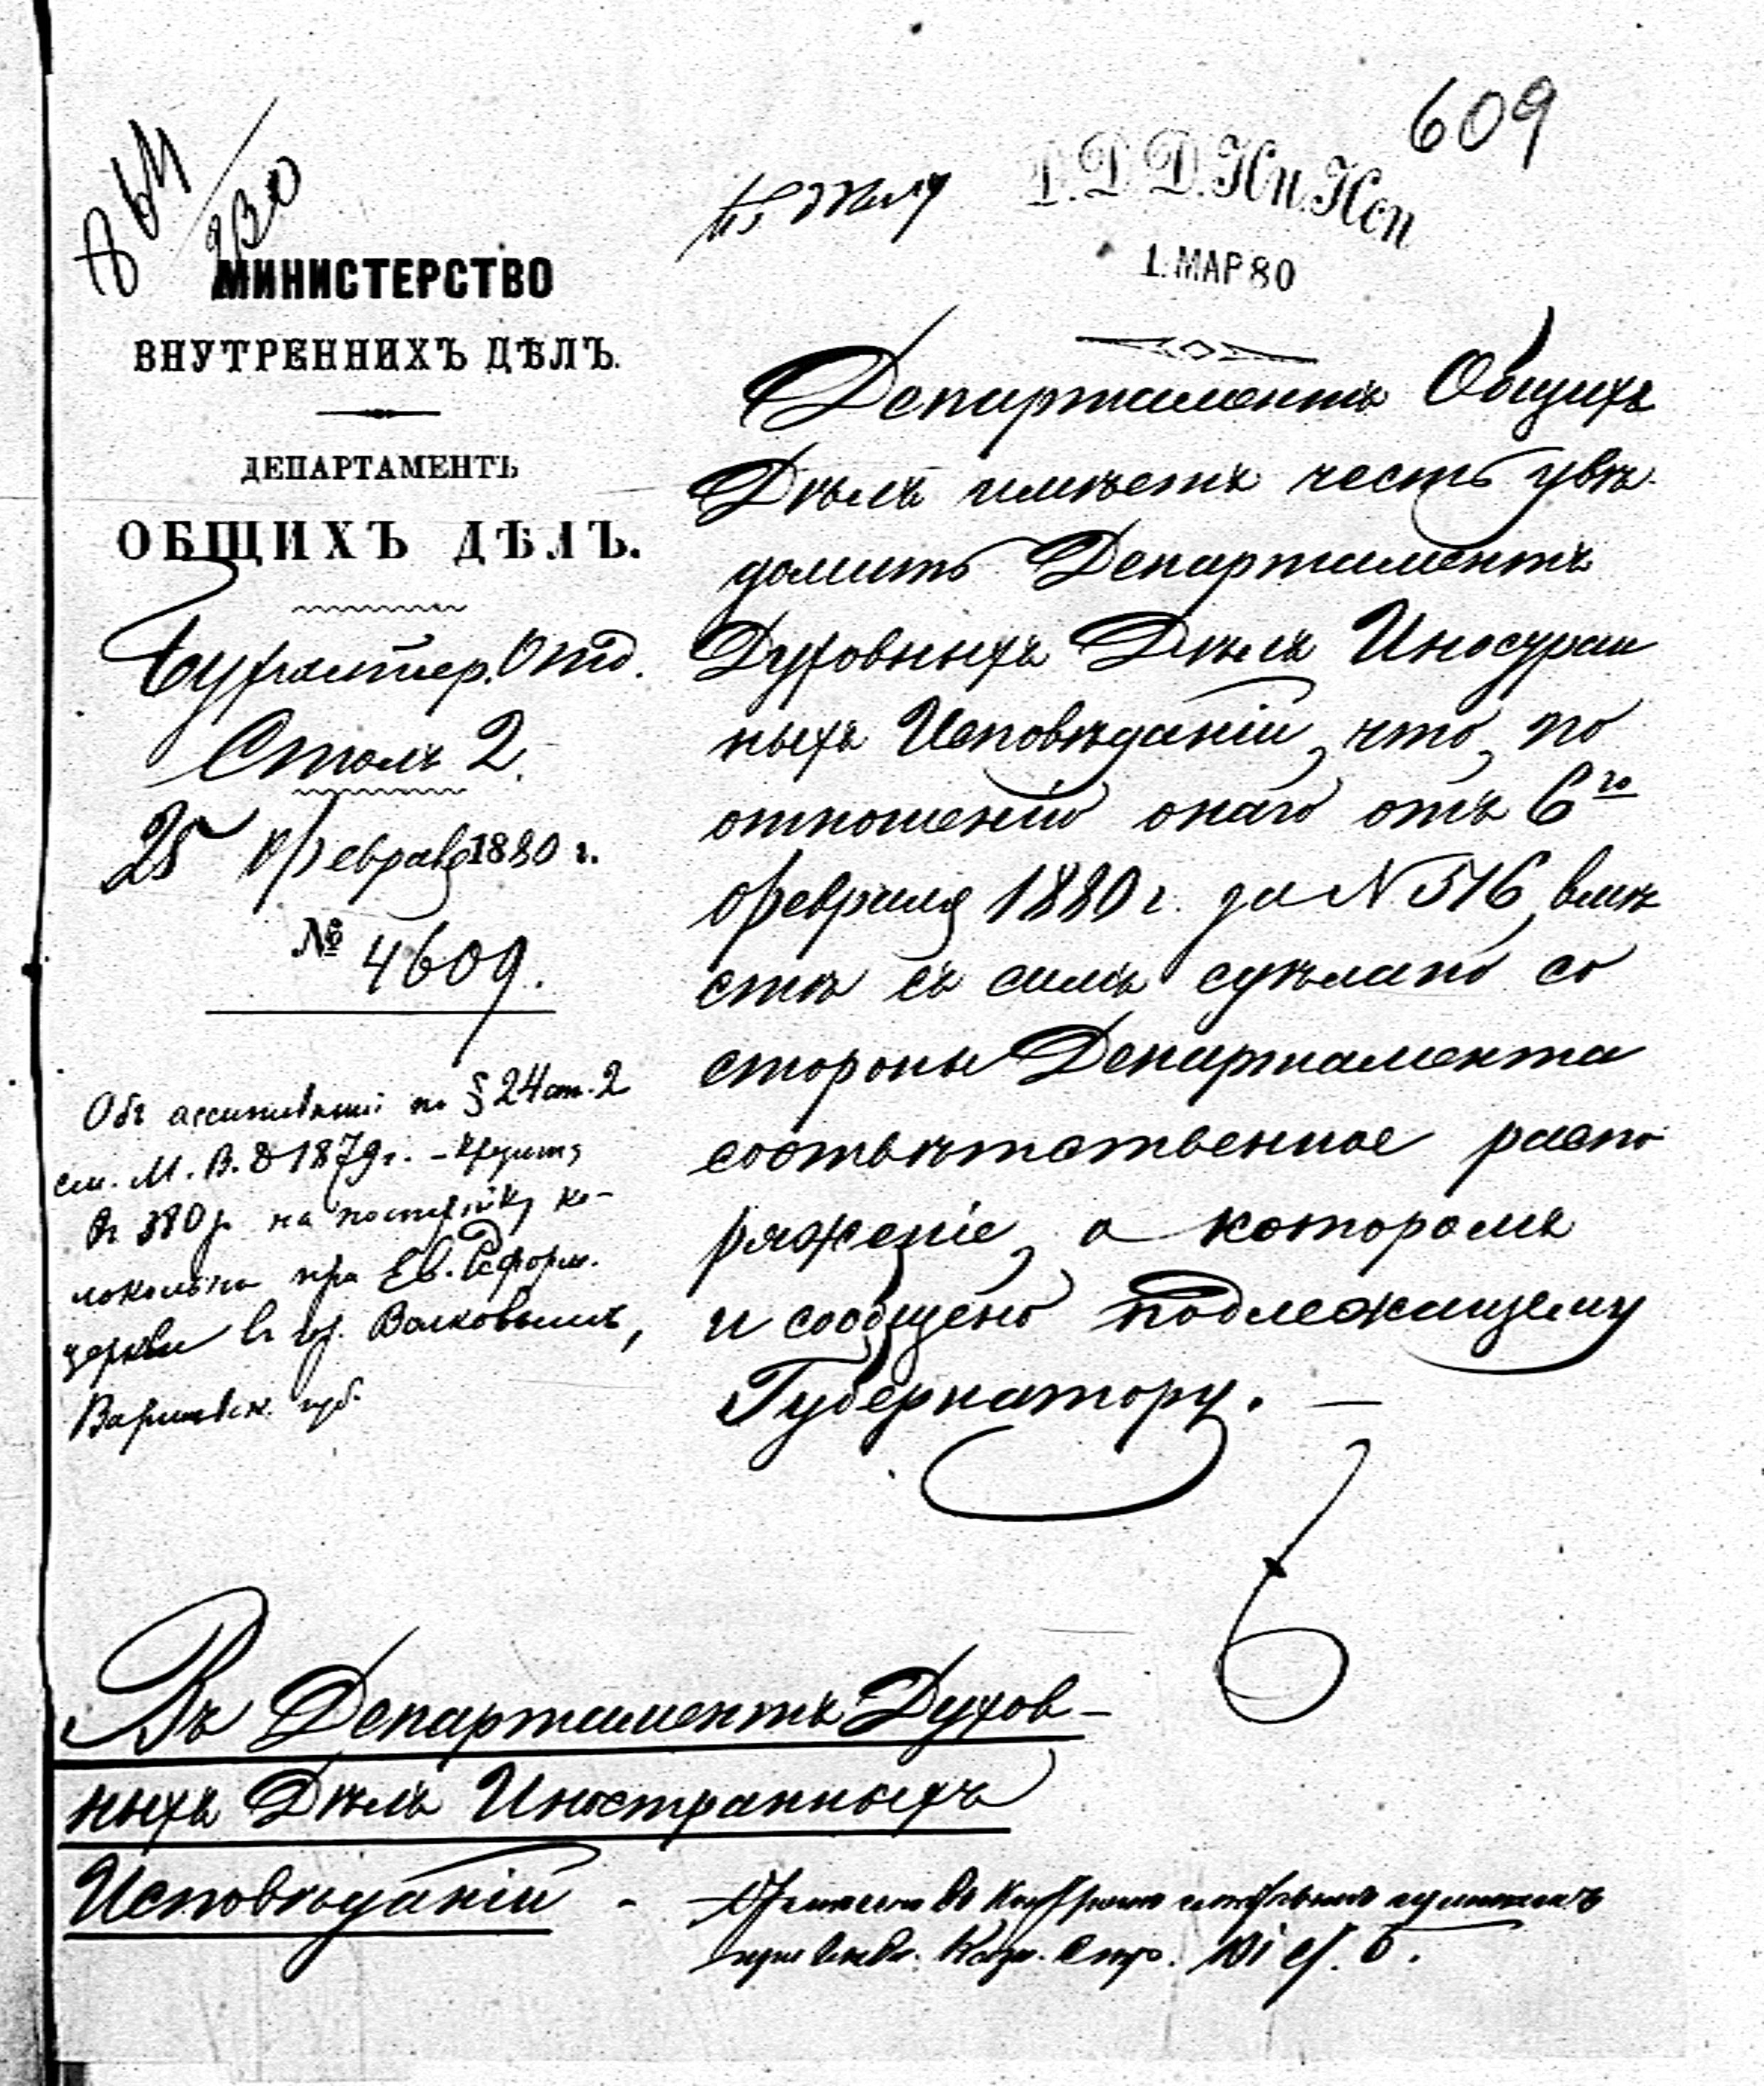 609
Д. Д. Д. Ин. Исп
1. МАР 80
МИНИСТЕРСТВО
ВНУТРЕННИХЪ ДѢЛЪ.
ДЕПАРТАМЕНТЪ
ОБЩИХЪ ДѢЛЪ.
Бухгалтер. Отд.
Столъ 2.
25 Февраля 1880 г.
№ 4609.
Объ ассигнованiи по § 24 ст. 2
см. М. В. Д 1879 г. - кредита
въ 380 р. на постройку ко-
локольни при Ев. Реформ.
церкви въ
Варшавск. губ.
Департаментъ Общихъ
Дѣлъ имѣетъ честь увѣ-
домить Департаментъ
Духовныхъ Дѣлъ Иностран
ныхъ Исповѣданiй, что, по
отношенiю онаго отъ 6го
Февраля 1880 г. за N 516, вмѣ
стѣ съ симъ сдѣлано со
стороны Департамента
соотвѣтственное распо
ряженiе, о которомъ
и сообщено подлежащему
Губернатору. —
Въ Департаментъ Духов-
ныхъ Дѣлъ Иностранныхъ
Исповѣданiй -